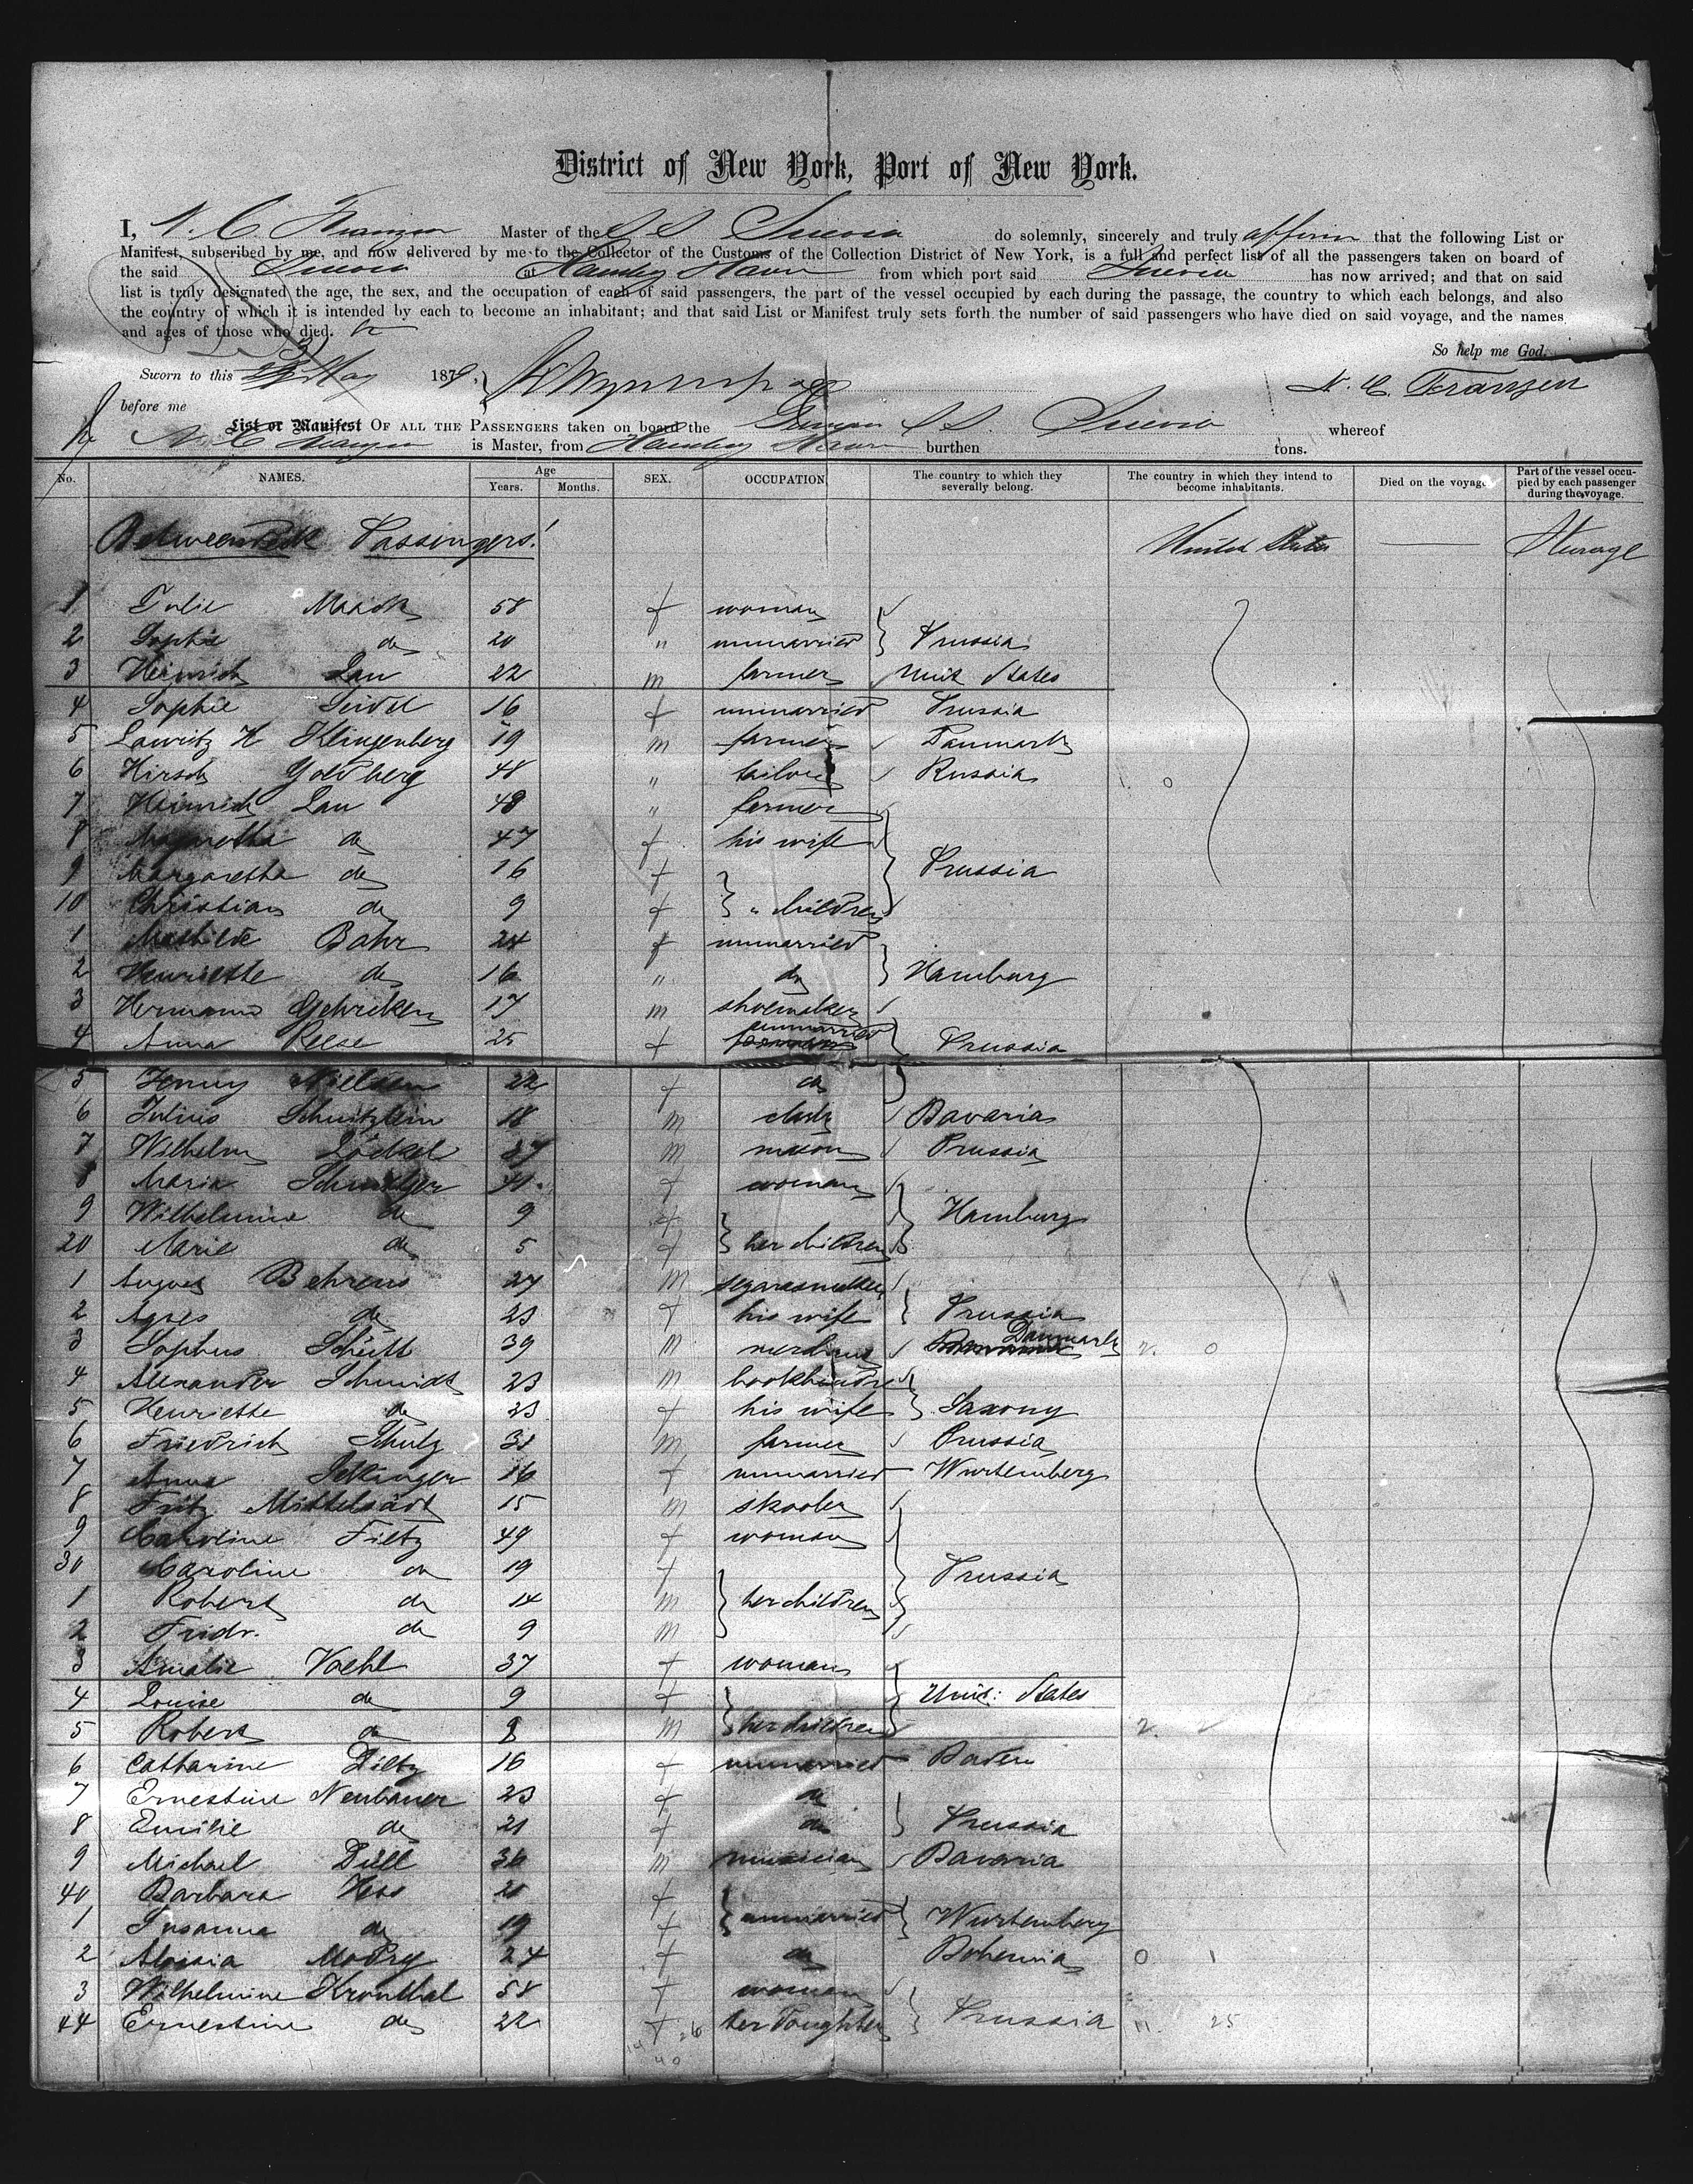 District of New York, Port of New York.
I, N. C. Franzen Master of the S S Suevia do solemnly, sincerely and truly affirm that the following List or
Manifest, subscribed by me, and now delivered by me to the Collector of the Customs of the Collection District of New York, is a full and perfect list of all the passengers taken on board of
the said Suevia at Hamburg Havre from which port said Suevia has now arrived; and that on said
list is truly designated the age, the sex, and the occupation of each of said passengers, the part of the vessel occupied by each during the passage, the country to which each belongs, and also
the country of which it is intended by each to become an inhabitant; and that said List or Manifest truly sets forth the number of said passengers who have died on said voyage, and the names
and ages of those who died.
So help me God.
Sworn to this May 1879. N. C. Franzen
before me
List or Manifest OF ALL THE PASSENGERS taken on board the German S S. Suevia whereof
N. C. Franzen is Master, from Hamburg Havre burthen tons.
No. NAMES. Age Years. Months. SEX. OCCUPATION The country to which they severally belong. The country in which they intend to become inhabitants. Died on the voyage Part of the vessel occupied by each passenger during the voyage.
Betweendeck Passengers! United States Steerage
1 Julie Maack 58 f woman
2 Sophie do 20 " unmarried Prussia
3 Heinrich Lau 22 m farmer Unit States
4 Sophie Seidel 16 f unmarried Prussia
5 Lauritz H Klingenberg 19 m farmer Danmark
6 Hirsch Goldberg 48 " tailor Russia
7 Heinrich Lau 48 " farmer
8 Magaretha do 47 f his wife
9 Margaretha do 16 f Prussia
10 Christian do 9 f " children
1 Mathilde Bahr 24 f unmarried
2 Henriette do 16 " do Hamburg
3 Hermann Gehrcken 17 m shoemaker
4 Anna Reese 25 f unmarried Prussia
5 Jenny Nielsen 22 f do
6 Julius 18 m clerk Bavaria
7 Wilhelm Löckel 37 m mason Prussia
8 Maria 41 f woman
9 Wilhelmine do 9 f Hamburg
20 Marie do 5 f her children
1 August Behrens 27 m segarsmaker
2 Agnes do 23 f his wife Prussia
3 Sophus Schütt 39 m Danmark
4 Alexander Schmidt 23 m bookbinder
5 Henriette do 23 f his wife Saxony
6 Friedrich Schulz 31 m farmer Prussia
7 Anna 16 f unmarried Wurtemberg
8 Fritz Mittelstädt 15 m skooler
9 Caroline Fieltz 49 f woman
30 Caroline do 19 f Prussia
1 Robert do 14 m her children
2 Fridr. do 9 m
3 Amalie Voehl 37 f woman
4 Louise do 9 f Unit: States
5 Robert do 8 m her children
6 Catharine Diltz 16 f unmarried Baden
7 Ernestine Neubauer 23 f do
8 Emilie do 21 f do Prussia
9 Michael Düll 36 m musician Bavaria
40 Barbara Hess 21 f
1 Susanna do 19 f unmarried Wurtemberg
2 Aloisia Modry 24 f do Bohemia
3 Wilhelmine Kronthal 58 f woman
44 Ernestine do 22 f her Doughter Prussia